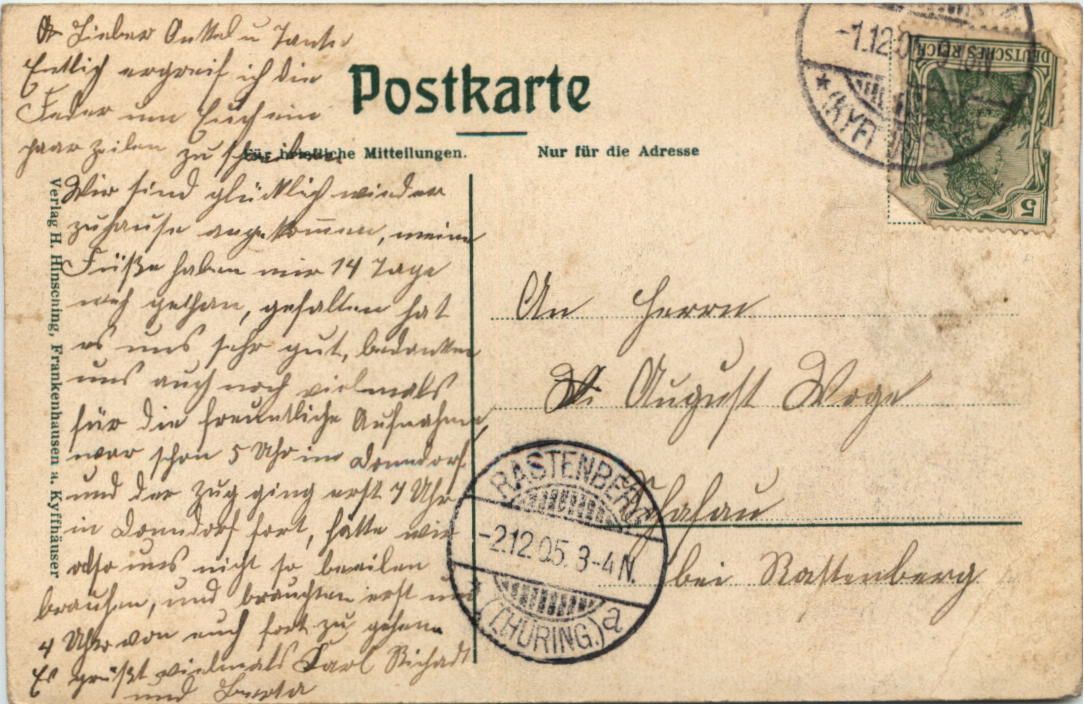 Lieber Onkel u Tante
Entlich ergreif ich die
Feder um Euch ein
paar zeilen zu schreiben
Wir sind glücklich wieder
zuhause angekommen, meine
Füße haben mir 14 Tage
weh gethan, gefallen hat
es uns sehr gut, bedanken
uns auch noch vielmals
für die freuntliche Aufnahme,
war schon 5 Uhr in Donndorf
und der Zug ging erst 7 Uhr
in Donndorf fort, hätte wir
also uns nicht so beeilen
brauchen, und brauchten erst um
4 Uhr von euch fort zu gehen.
Es grüßt vielmals Karl Richadt
und Berta
Postkarte
Für briefliche Mitteilungen.
Nur für die Adresse
Verlag H. Hinsching, Frankenhausen a. Kyffhäuser
An Herrn
August Woge
bei Rastenberg
-1.12.05
(KYF
DEUTSCHES REICH
5
RASTENBERG
-2.12.05. 3-4N.
* (THÜRING.) a